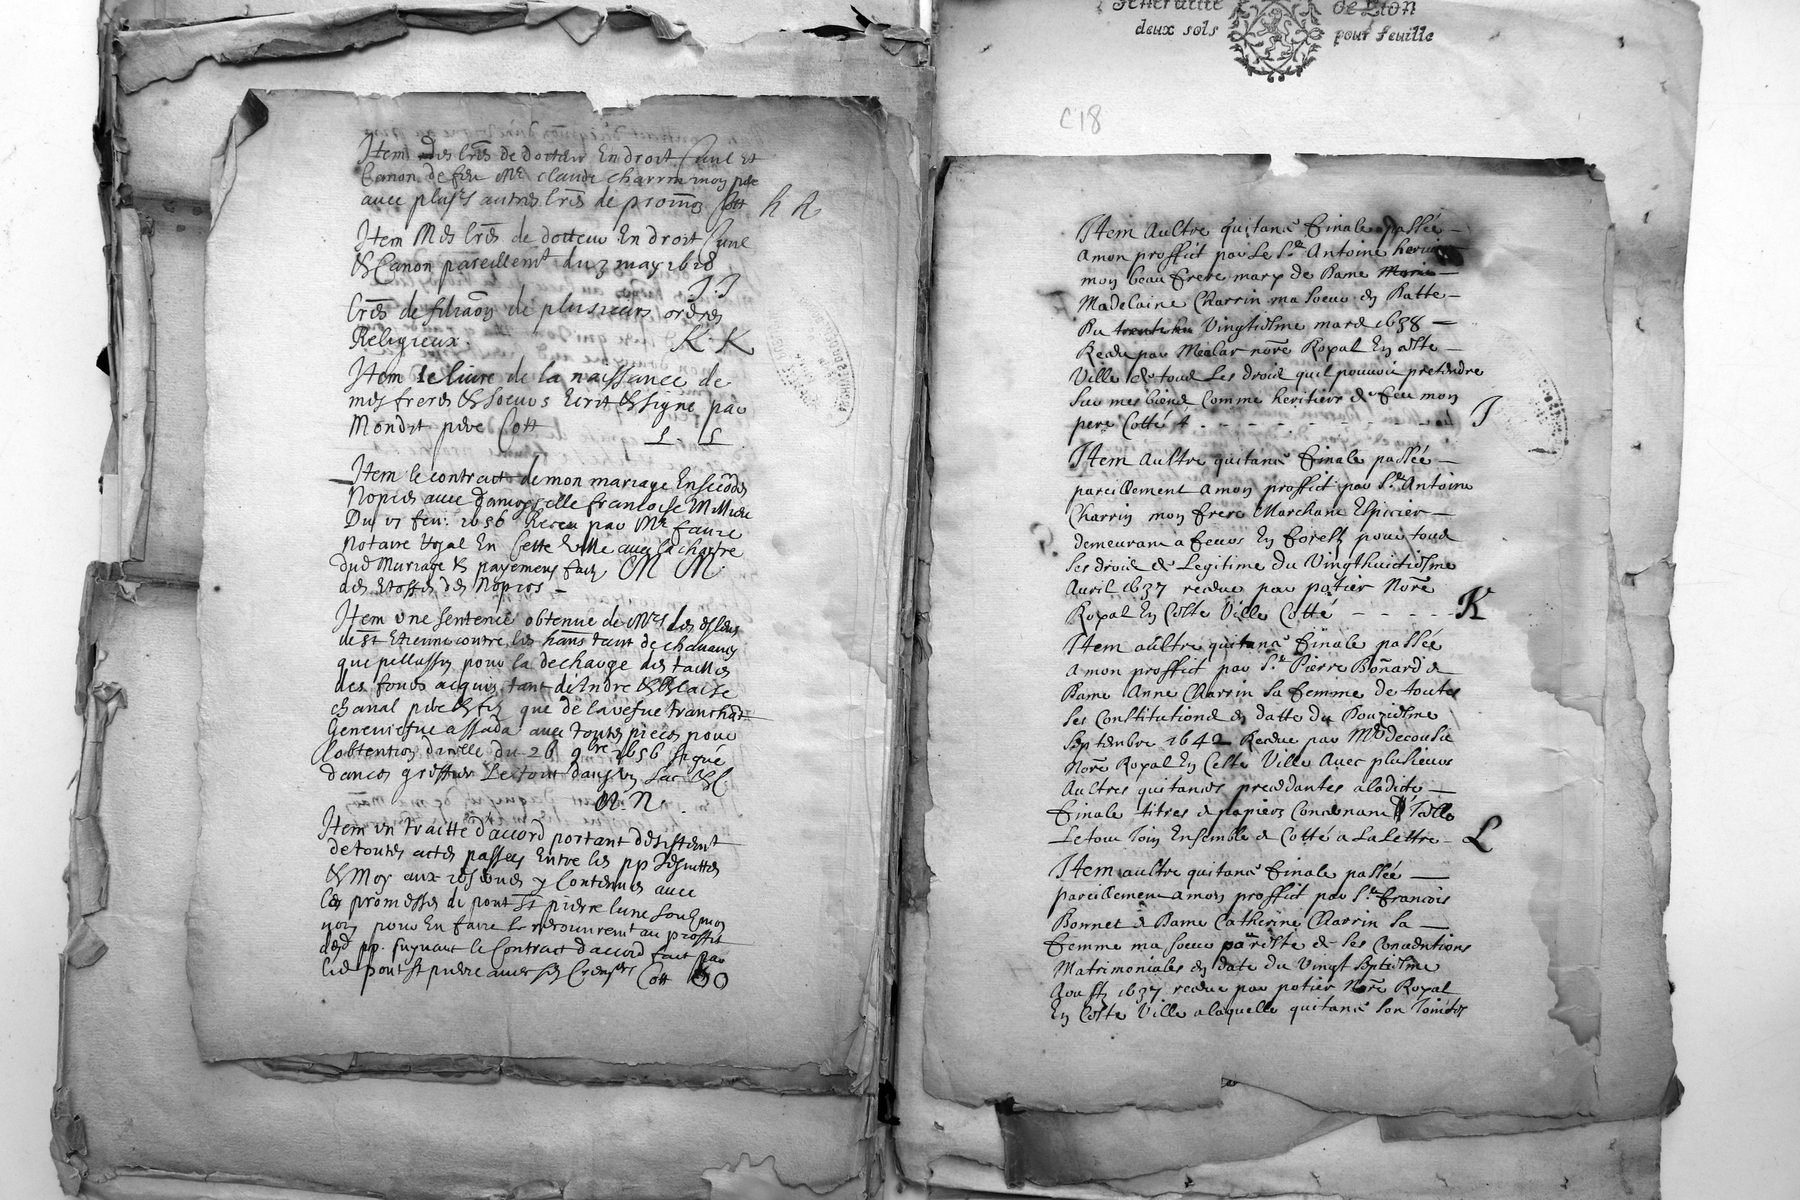 Item des lrēs de docteur En droit Civil Et
Canon de feu Mr. claude charrin mon pere
avec plusrs autres lrēs de Cott h h
Item Mes lrēs de docteur En droit Civil
& Canon pareillemt du 3 may 1628
J.J
lrēs de filiaōn de plusieurs ordres
Religieux. K. K
Item le livre de la naissance de
mes freres & soeurs Ecrit & signe par
Mondit pere Cott L. L
Item le contract de mon mariage En secōdes
Nopces avec damoyselle francoise
Du feu: 1656 Receu par Mr. faure
Notaire Royal En Cette ville avec la chartre
dud Mariage & payemens faits M M.
des Etoffes des Nopces -
Item une sentence obtenue de Mrs les esleus
de St Etienne contre les hans tant de chavanay
que pellussin pour la decharge des tailles
des fonds acquis tant de Andre & Blaise
chanal pere & fils que de la vefue tranchāt
Geneviefue assada avec toutes pieces pour
l'obtention d'icelle du 26 9bre 1656 signé
dances greffier Le tout dans un sac &C
N. N.
Item un traitté d'accord portant desistemt
de toutes actes passees Entre les pp Jesuittes
& Moy aux reserves y Contenues avec
les promesses de pont St pierre l'une
pour En faire le recouvremt au proffit
desd pp. suyvant le Contract d'accord fait par
led pont St pierre avec ses Cott OO
Generalité de Lion
deux sols pour feuille
C18
Item Aultre quitance finale passée -
A mon proffict par Le Sr. Antoine
mon beau frere mary de Dame Marie -
Madelaine Charrin ma soeur en Datte -
Du trente Vingtiesme mars 1638 -
Receue par Meslar notre Royal En ceste -
Ville de tous Les droicts quil pouvoit pretendre
Sur mes biens Comme heritiers de feu mon
pere Cotté - - - - - - - - J
Item Aultre quitance finale passée -
pareillement A mon proffict par Sr. Antoine
Charrin mon frere Marchant Espicier -
demeurant a feurs En forests pour tous
Ses droits de Legitime du Vingthuictiesme
Avril 1637 receue par potier Notre
Royal En Ceste Ville Cotté - - - - - K
Item aultre quitance finale passée
A mon proffict par Sr. Pierre Bonard &
Dame Anne Charrin Sa femme de toutes
Ses Constitutions en datte du Douziesme
Septembre 1642 Receue par Me decousu
Notre Royal En Ceste Ville Avec plusieurs
Aultres quitances precedantes a ladicte -
finale titres & papiers Concernant
Le tout Join Ensemble & Cotté a La Lettre - L
Item aultre quitance finale passée -
pareillement A mon proffict par Sr. francois
Bonnet & Dame Catherine Charrin Sa -
femme ma soeur de Ses Conventions
Matrimoniales en date du Vingt Septiesme
Aoust 1637 receue par potier Notre Royal
En Ceste Ville a laquelle quitance Son Joinctes